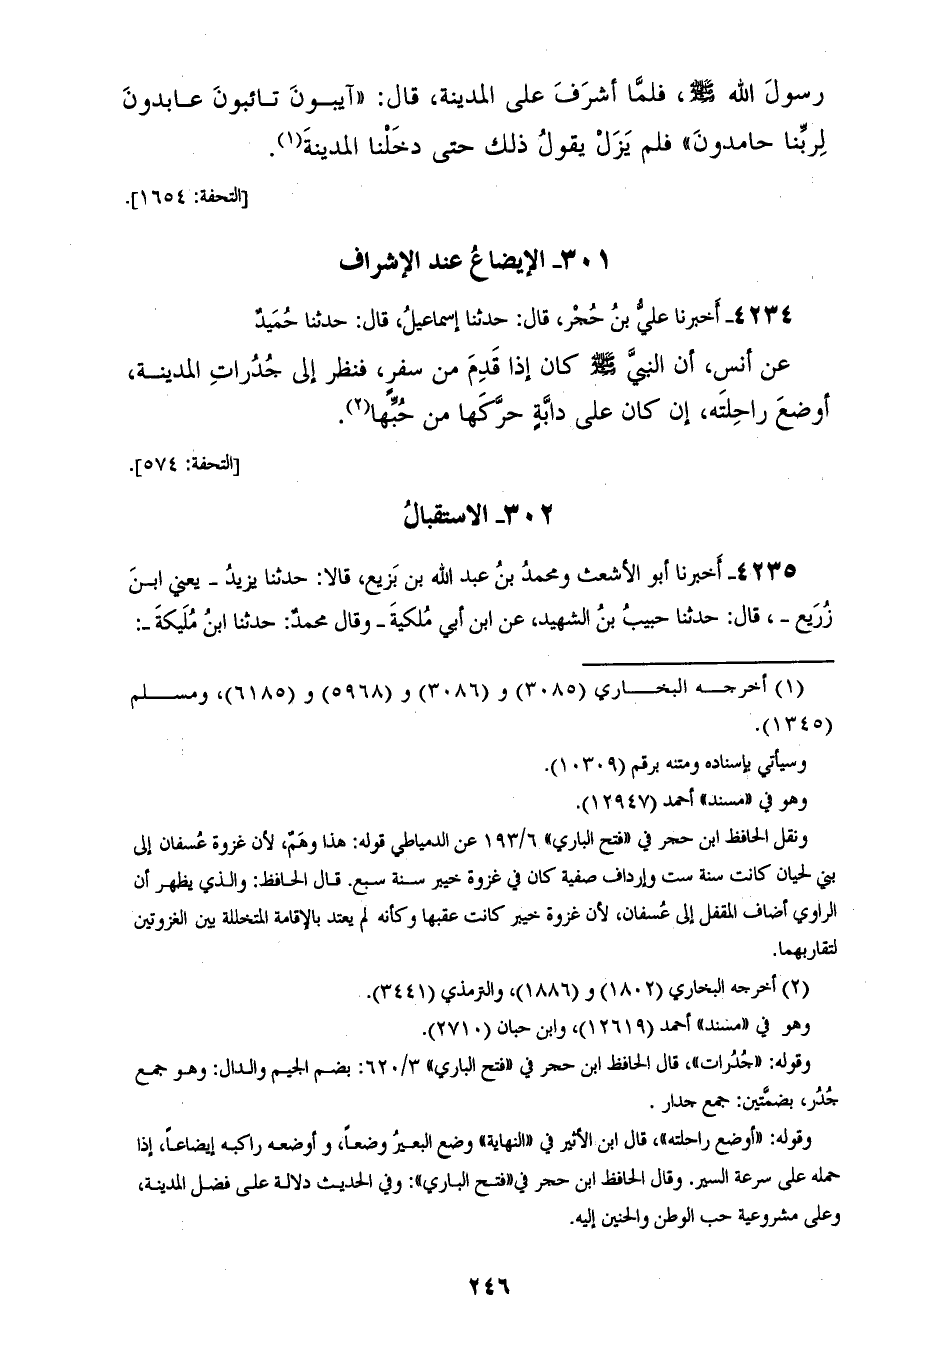 رسولَ الله ﷺ، فلمَّا أشرَفَ على المدينة، قال: «آيبـونَ تـائبونَ عـابدونَ
لِربِّنا حامدونَ» فلم يَزَلْ يقولُ ذلك حتى دخَلْنا المدينةَ(١).
[التحفة: ١٦٥٤].
٣٠١ـ الإيضاعُ عند الإشراف
٤٢٣٤ـ أخبرنا عليُّ بنُ حُجْر، قال: حدثنا إسماعيلُ، قال: حدثنا حُمَيدٌ
عن أنس، أن النبيَّ ﷺ كان إذا قَدِمَ من سفرٍ، فنظر إلى جُدُراتِ المدينـة،
أوضعَ راحِلتَه، إن كان على دابَّةٍ حرَّكَها من حُبِّها(٢).
[التحفة: ٥٧٤].
٣٠٢ـ الاستقبالُ
٤٢٣٥ـ أخبرنا أبو الأشعث ومحمدُ بنُ عبد الله بن بَزيع، قالا: حدثنا يزيدُ ـ يعني ابـنَ
زُرَيع ـ، قال: حدثنا حبيبُ بنُ الشهيد، عن ابن أبي مُلكيةَ ـ وقال محمدٌ: حدثنا ابنُ مُلَيكةَ ـ:
(١) أخرجـه البخـاري (٣٠٨٥) و (٣٠٨٦) و (٥٩٦٨) و (٦١٨٥)، ومسـلم
(١٣٤٥).
وسيأتي بإسناده ومتنه برقم (١٠٣٠٩).
وهو في «مسند» أحمد (١٢٩٤٧).
ونقل الحافظ ابن حجر في «فتح الباري» ١٩٣/٦ عن الدمياطي قوله: هذا وهَمٌ، لأن غزوة عُسفان إلى
بني لحيان كانت سنة ست وإرداف صفية كان في غزوة خيبر سنـة سبـع. قـال الحـافظ: والـذي يظهـر أن
الراوي أضاف المقفل إلى عُسفان، لأن غزوة خيبر كانت عقبها وكأنه لم يعتد بالإقامة المتخللة بين الغزوتين
لتقاربهما.
(٢) أخرجه البخاري (١٨٠٢) و (١٨٨٦)، والترمذي (٣٤٤١).
وهو في «مسند» أحمد (١٢٦١٩)، وابن حبان (٢٧١٠).
وقوله: «جُدُرات»، قال الحافظ ابن حجر في «فتح الباري» ٦٢٠/٣: بضـم الجيـم والـدال: وهـو جمـع
جُدُر، بضمَّتين: جمع جدار .
وقوله: «أوضع راحلته»، قال ابن الأثير في «النهاية» وضع البعيرُ وضعاً، و أوضعـه راكبـه إيضاعـاً، إذا
حمله على سرعة السير. وقال الحافظ ابن حجر في«فتـح البـاري»: وفي الحديـث دلالـة علـى فضـل المدينـة،
وعلى مشروعية حب الوطن والحنين إليه.
٢٤٦